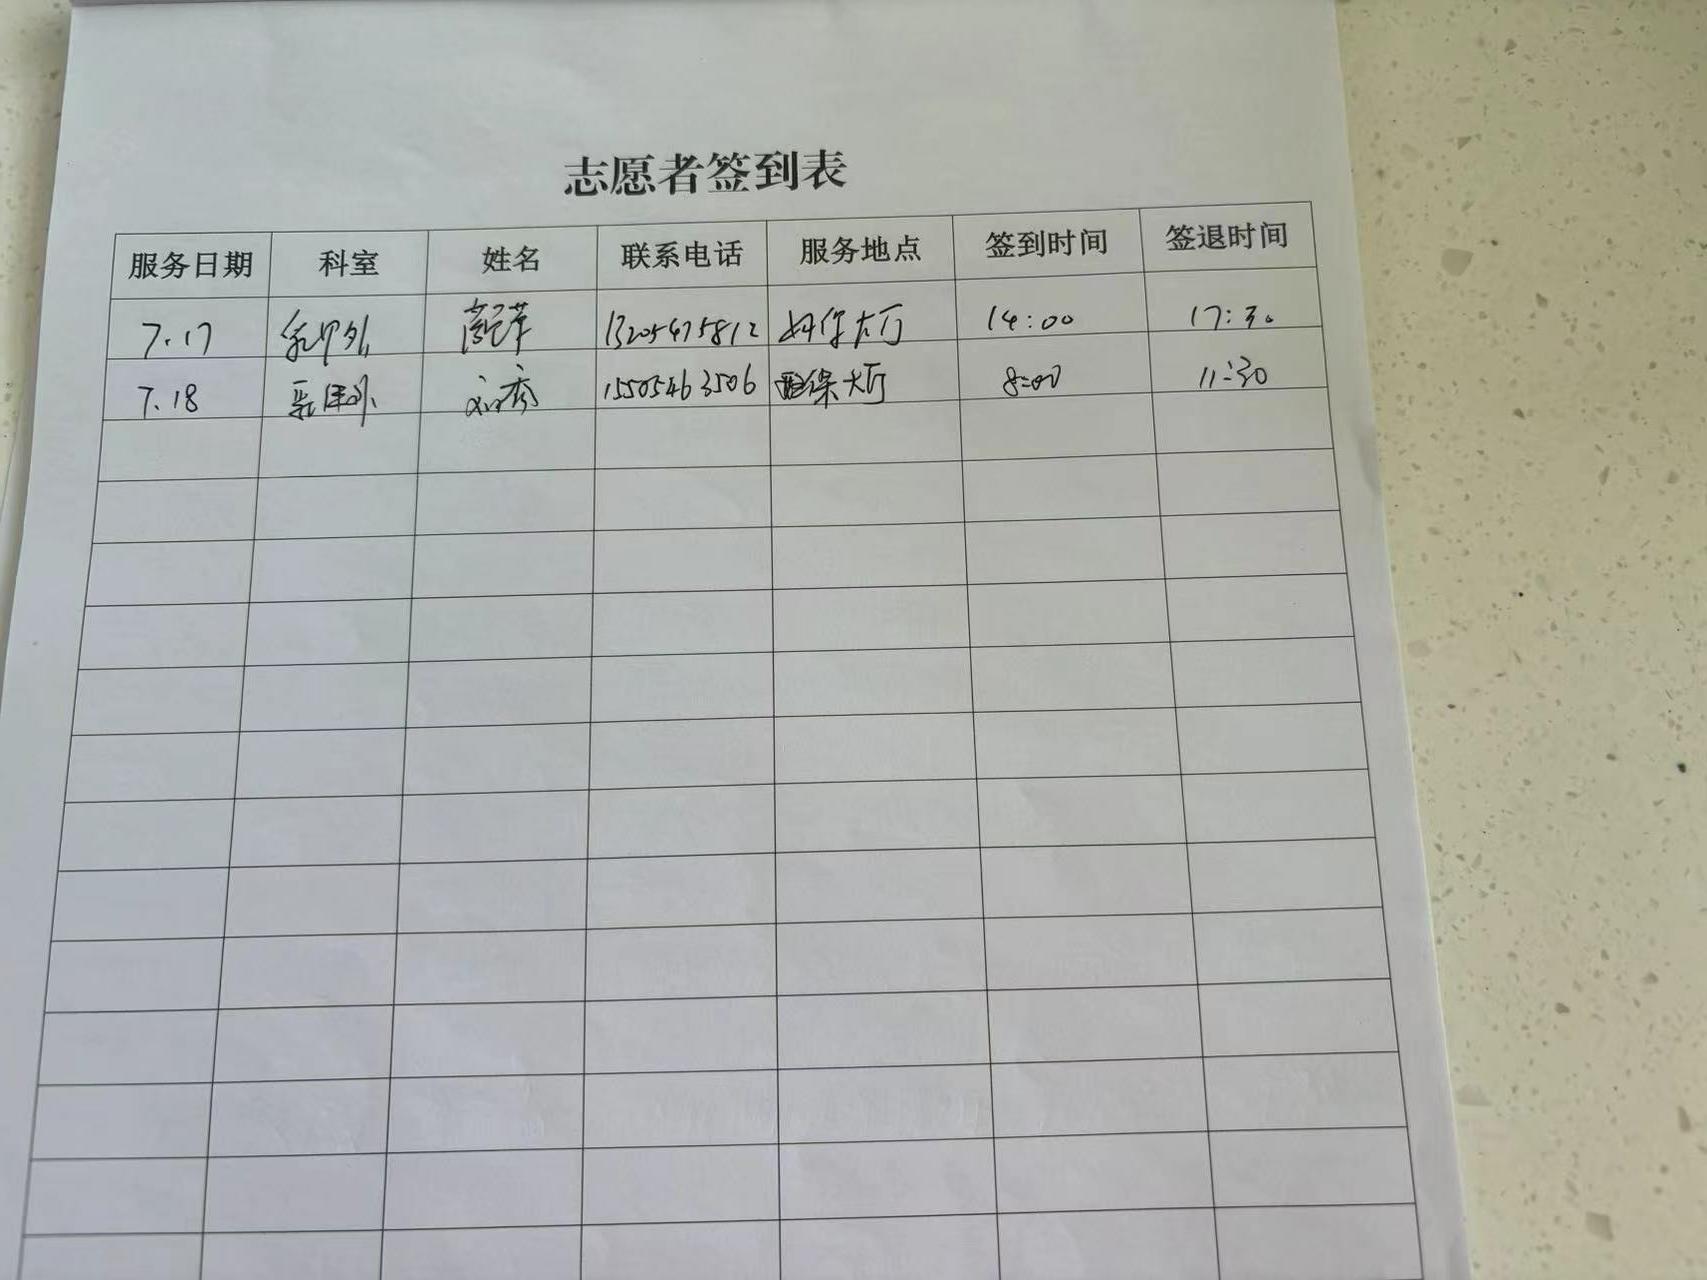 志愿者签到表
服务日期 科室 姓名 联系电话 服务地点 签到时间 签退时间
7.17 乳甲外 13205475812 大厅 14:00 17:30
7.18 乳甲外 15505463506 医保大厅 8:00 11:30